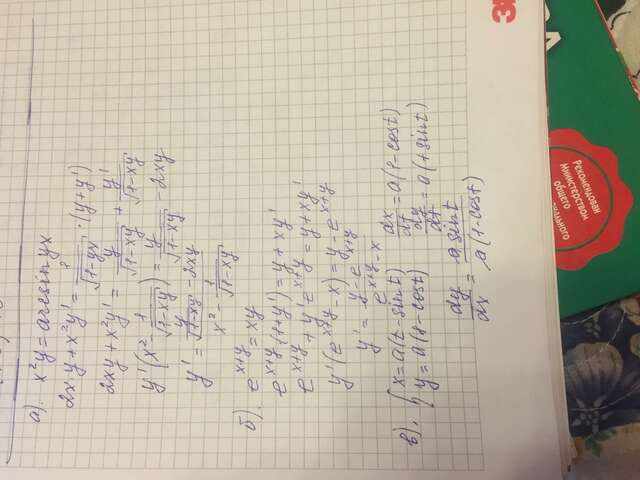 а). x²y = arcsin yx
2xy + x²y' = 1/√(1-yx) · (y+y')
2xy + x²y' = y/√(1-xy) + y'/√(1-xy)
y'(x² - 1/√(1-xy)) = y/√(1-xy) - 2xy
y' = (y/√(1-xy) - 2xy)/(x² - 1/√(1-xy))
б). e^(x+y) = xy
e^(x+y)(1+y') = y + xy'
e^(x+y) + y'e^(x+y) = y + xy'
y'(e^(x+y) - x) = y - e^(x+y)
y' = (y - e^(x+y))/(e^(x+y) - x)
в). { x = a(t - sint) dx/dt = a(1 - cost)
y = a(1 - cost) dy/dt = a(+sint)
dy/dx = a sint/a(1 - cost)
Рекомендован
Министерством
общего